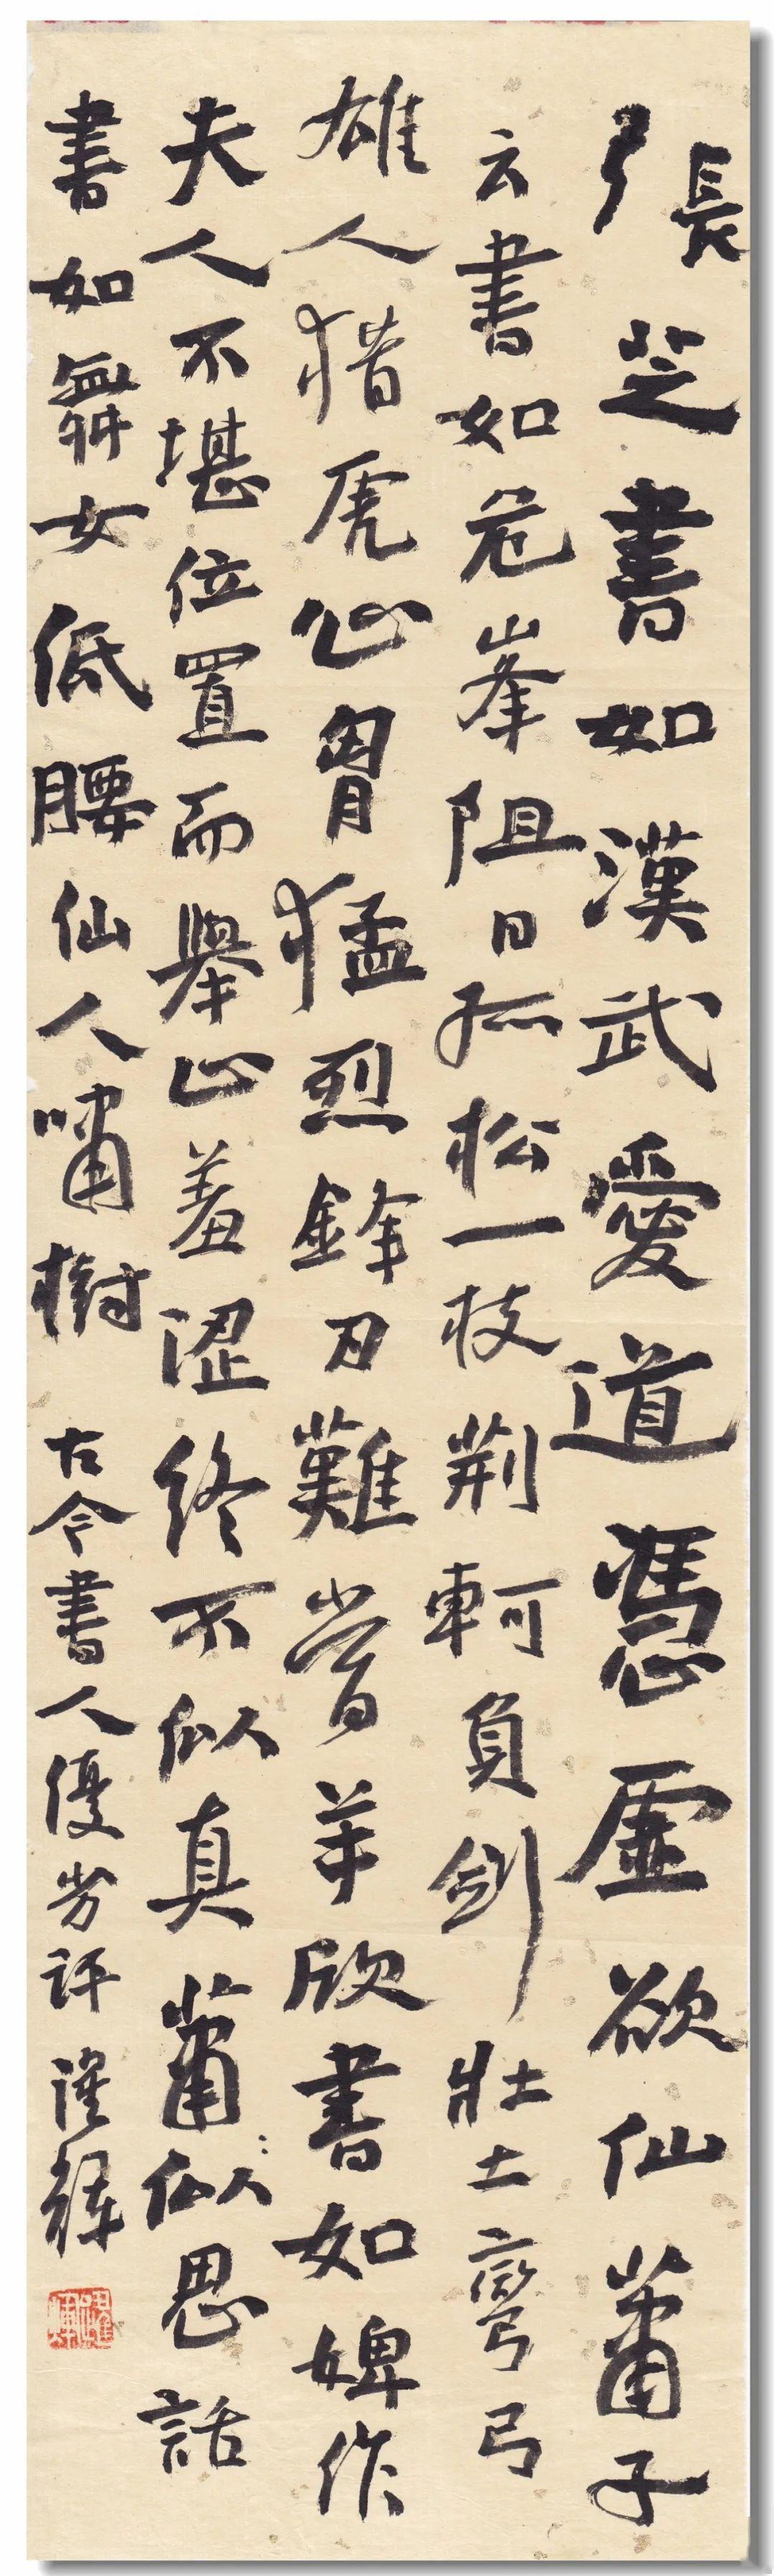 張芝書如漢武愛道憑虛欲仙蕭子
云書如危峯阻日孤松一枝荆軻負劍壮士彎弓
雄人猎虎心胷猛烈鋒刃難當羊欣書如婢作
夫人不堪位置而舉止羞涩終不似真蕭似思話
書如舞女低腰仙人嘯樹
古今書人優劣評